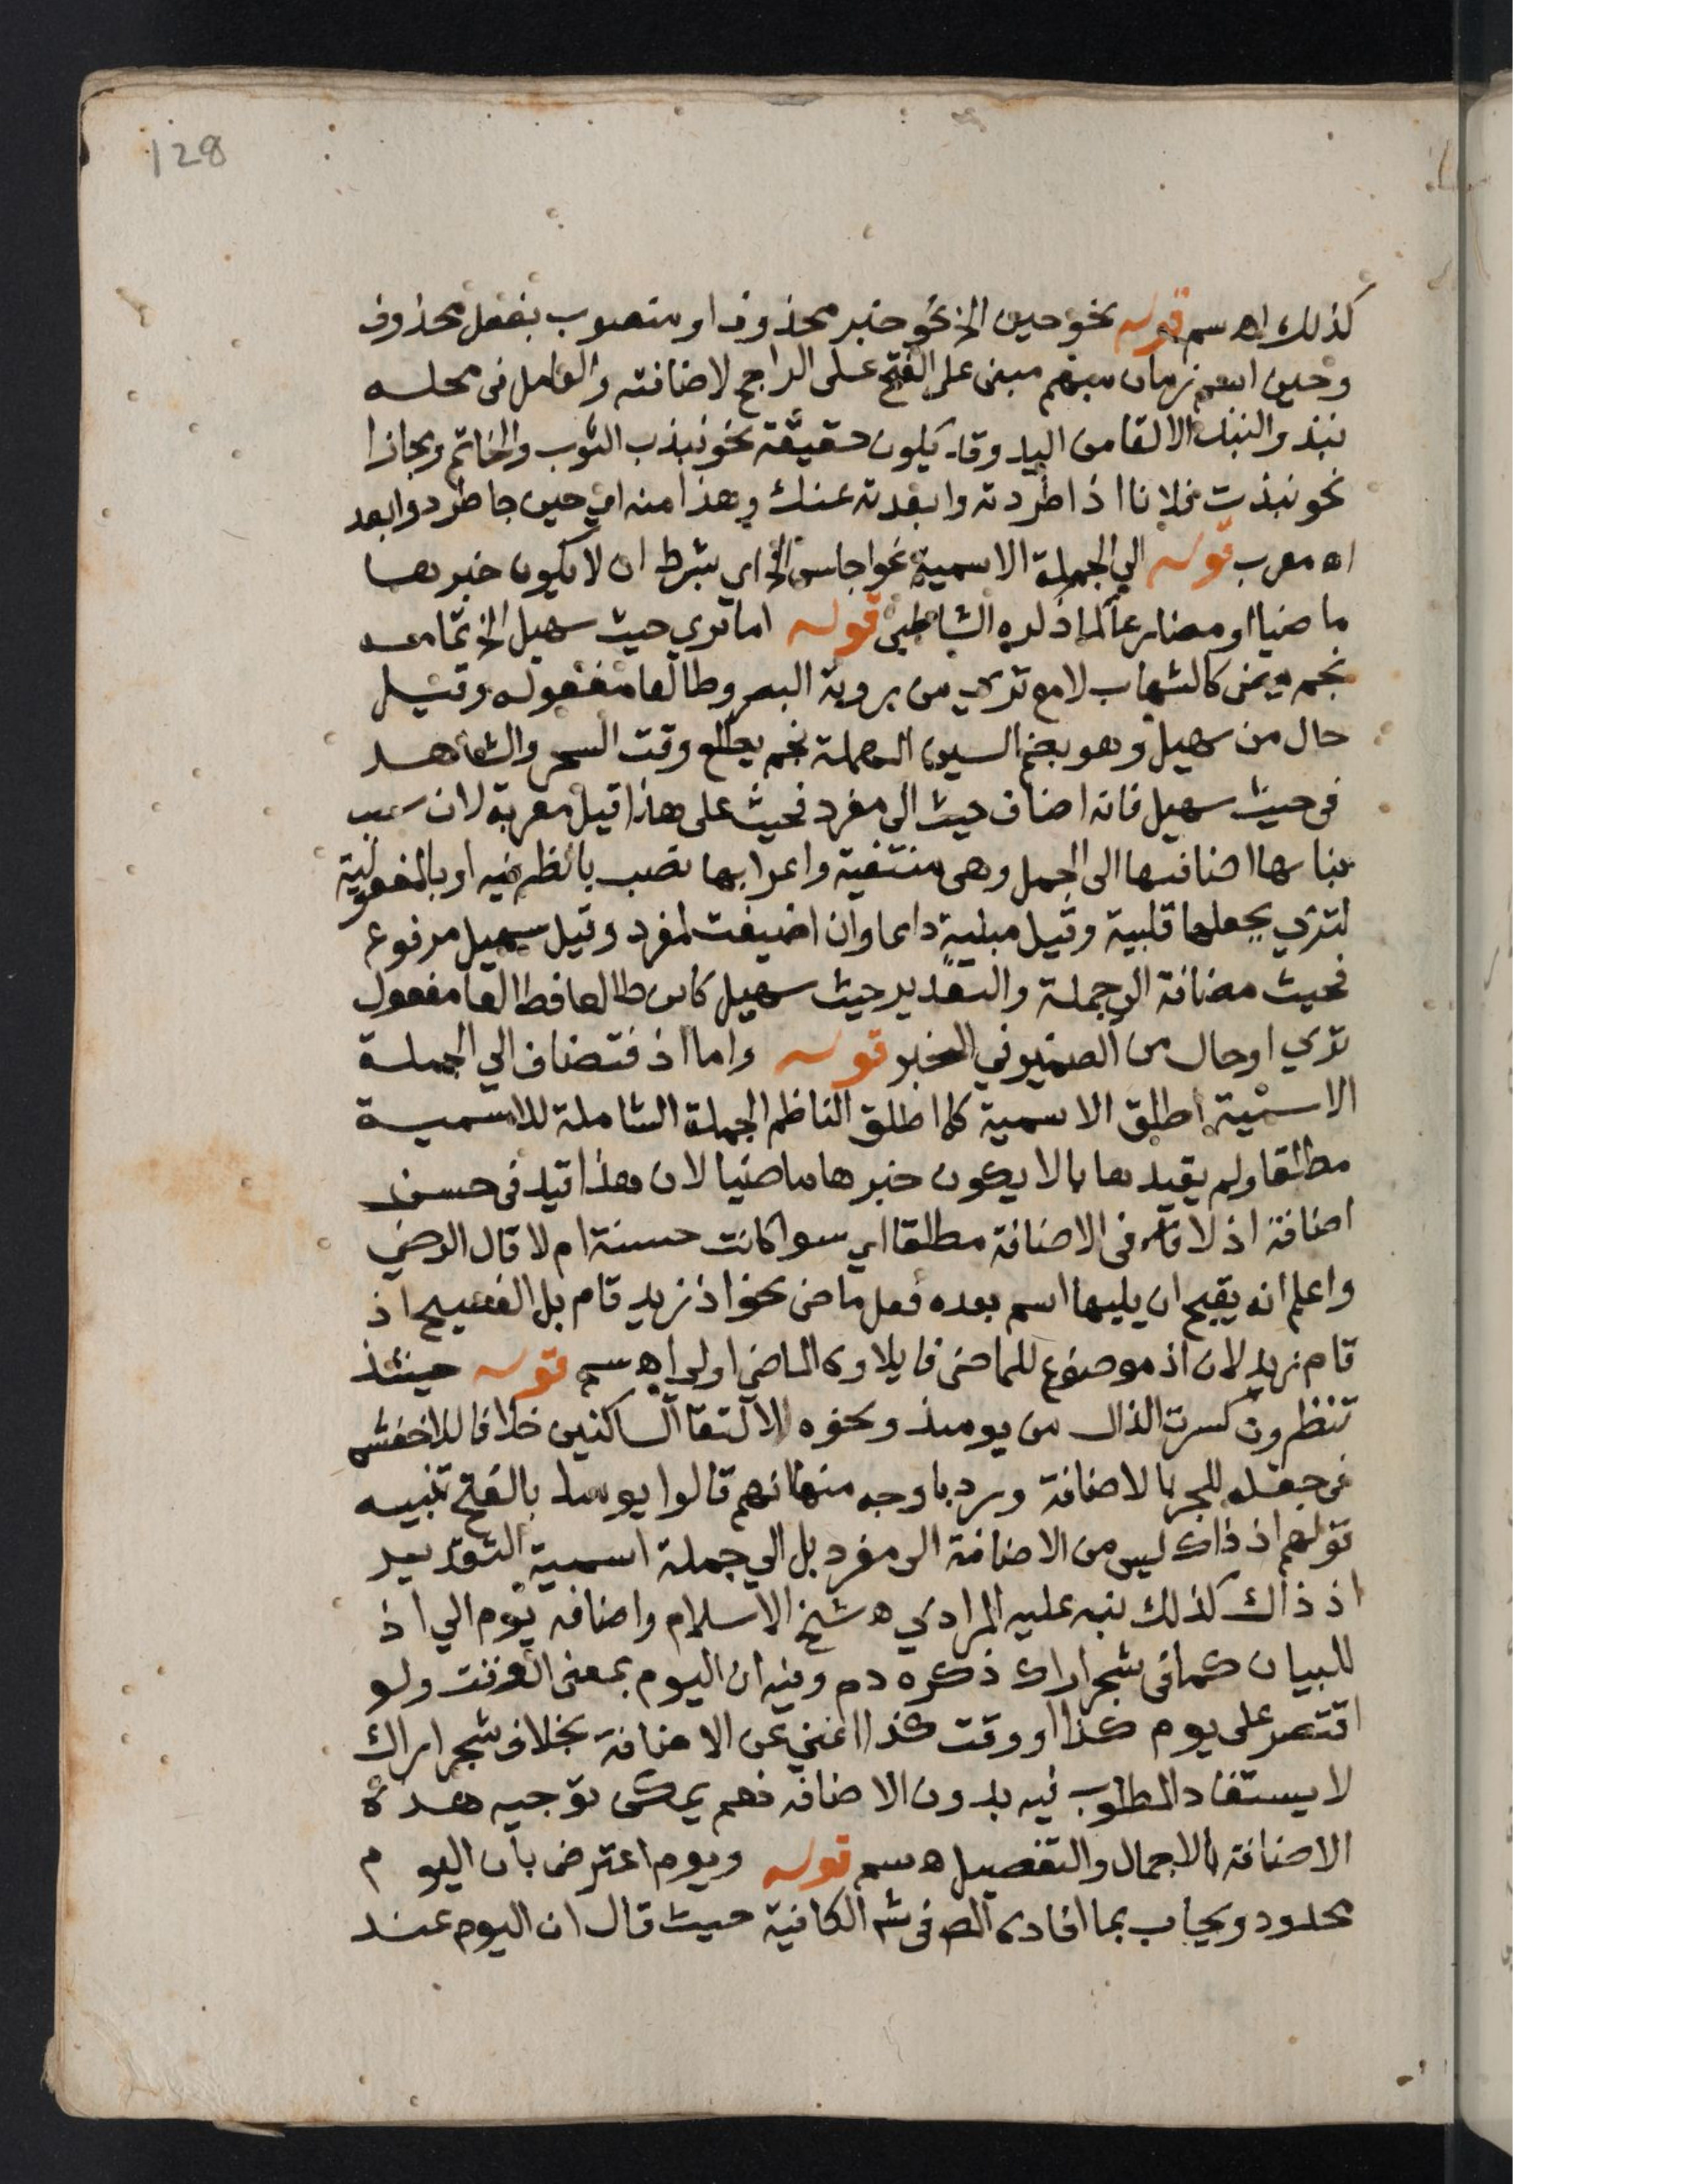 128
كذلك اه سم قوله نحو حين الخ نحو خبر محذوف او منصوب بفعل محذوف
وحين اسم زمان مبهم مبنى على الفتح على الراجح لاضافته والعامل فى محله
نبذ والنبذ الالقا من اليد وقد يكون حقيقة نحو نبذت الثوب والخاتم ومجازا
نحو نبذت فلانا اذا طردته وابعدته عنك وهذا منه اي حين جا طرد وابعد
اه معرب قوله الي الجملة الاسمية نحو اجلس الخ اي بشرط ان لا يكون خبرها
ماضيا او مضارعا كما ذكره الشاطبى قوله اما تري حيث سهيل الخ تمامه
نجم يضى كالشهاب لامع تري من روية البصر وطالعا مفعوله وقيل
حال من سهيل وهو بضم السين المهملة نجم يطلع وقت السحر والشاهد
فى حيث سهيل فانه اضاف حيث الى مفرد فحيث على هذا قيل معربة لان سبب
بناىها اضافتها الى الجمل وهى منتفية واعرابها نصب بالظرفيه او بالمفعولية
لتري بجعلها قلبية وقيل مبنية دايما وان اضيفت لمفرد وقيل سهيل مرفوع
فحيث مضافة الى جملة والتقدير حيث سهيل كاين طالعا فطالعا مفعول
تري او حال من الضمير في الخبر قوله واما اذ فتضاف الي الجملة
الاسمية اطلق الاسمية كما اطلق الناظم الجملة الشاملة للاسمية
مطلقا ولم يقيدها بما لا يكون خبرها ماضيا لان هذا قيد فى حسن
اضافة اذ لا قام فى الاضافة مطلقا اي سوا كانت حسنة ام لا قال الرضي
واعلم انه يقبح ان يليها اسم بعده فعل ماضى نحو اذ زيد قام بل الفصيح اذ
قام زيد لان اذ موضوع للماضى فايلاوه الماضي اولى اه سم قوله حينئذ
تنظرون كسرت الذال من يومئذ ونحوه لالتقا الساكنين خلافا للاخفش
فى جعله للجر بالاضافة ورد باوجه منها انهم قالوا يومئذ بالفتح تنبيه
قولهم اذ ذاك ليس من الاضافة الى مفرد بل الي جملة اسمية التقدير
اذ ذاك كذلك نبه عليه المرادي ه شيخ الاسلام واضافه يوم الي اذ
للبيان كما فى شجر اراك ذكره دم وفيه ان اليوم بمعنى الوقت ولو
اقتصر على يوم كذا او وقت كذا اغني عن الاضافة بخلاف شجر اراك
لا يستفاد المطلوب فيه بدون الاضافه فهم يمكن توجيه هذه
الاضافة بالاجمال والتفصيل ه سم قوله ويوم اعترض بان اليوم
محدود ويجاب بما افاده المص فى شر الكافية حيث قال ان اليوم عند